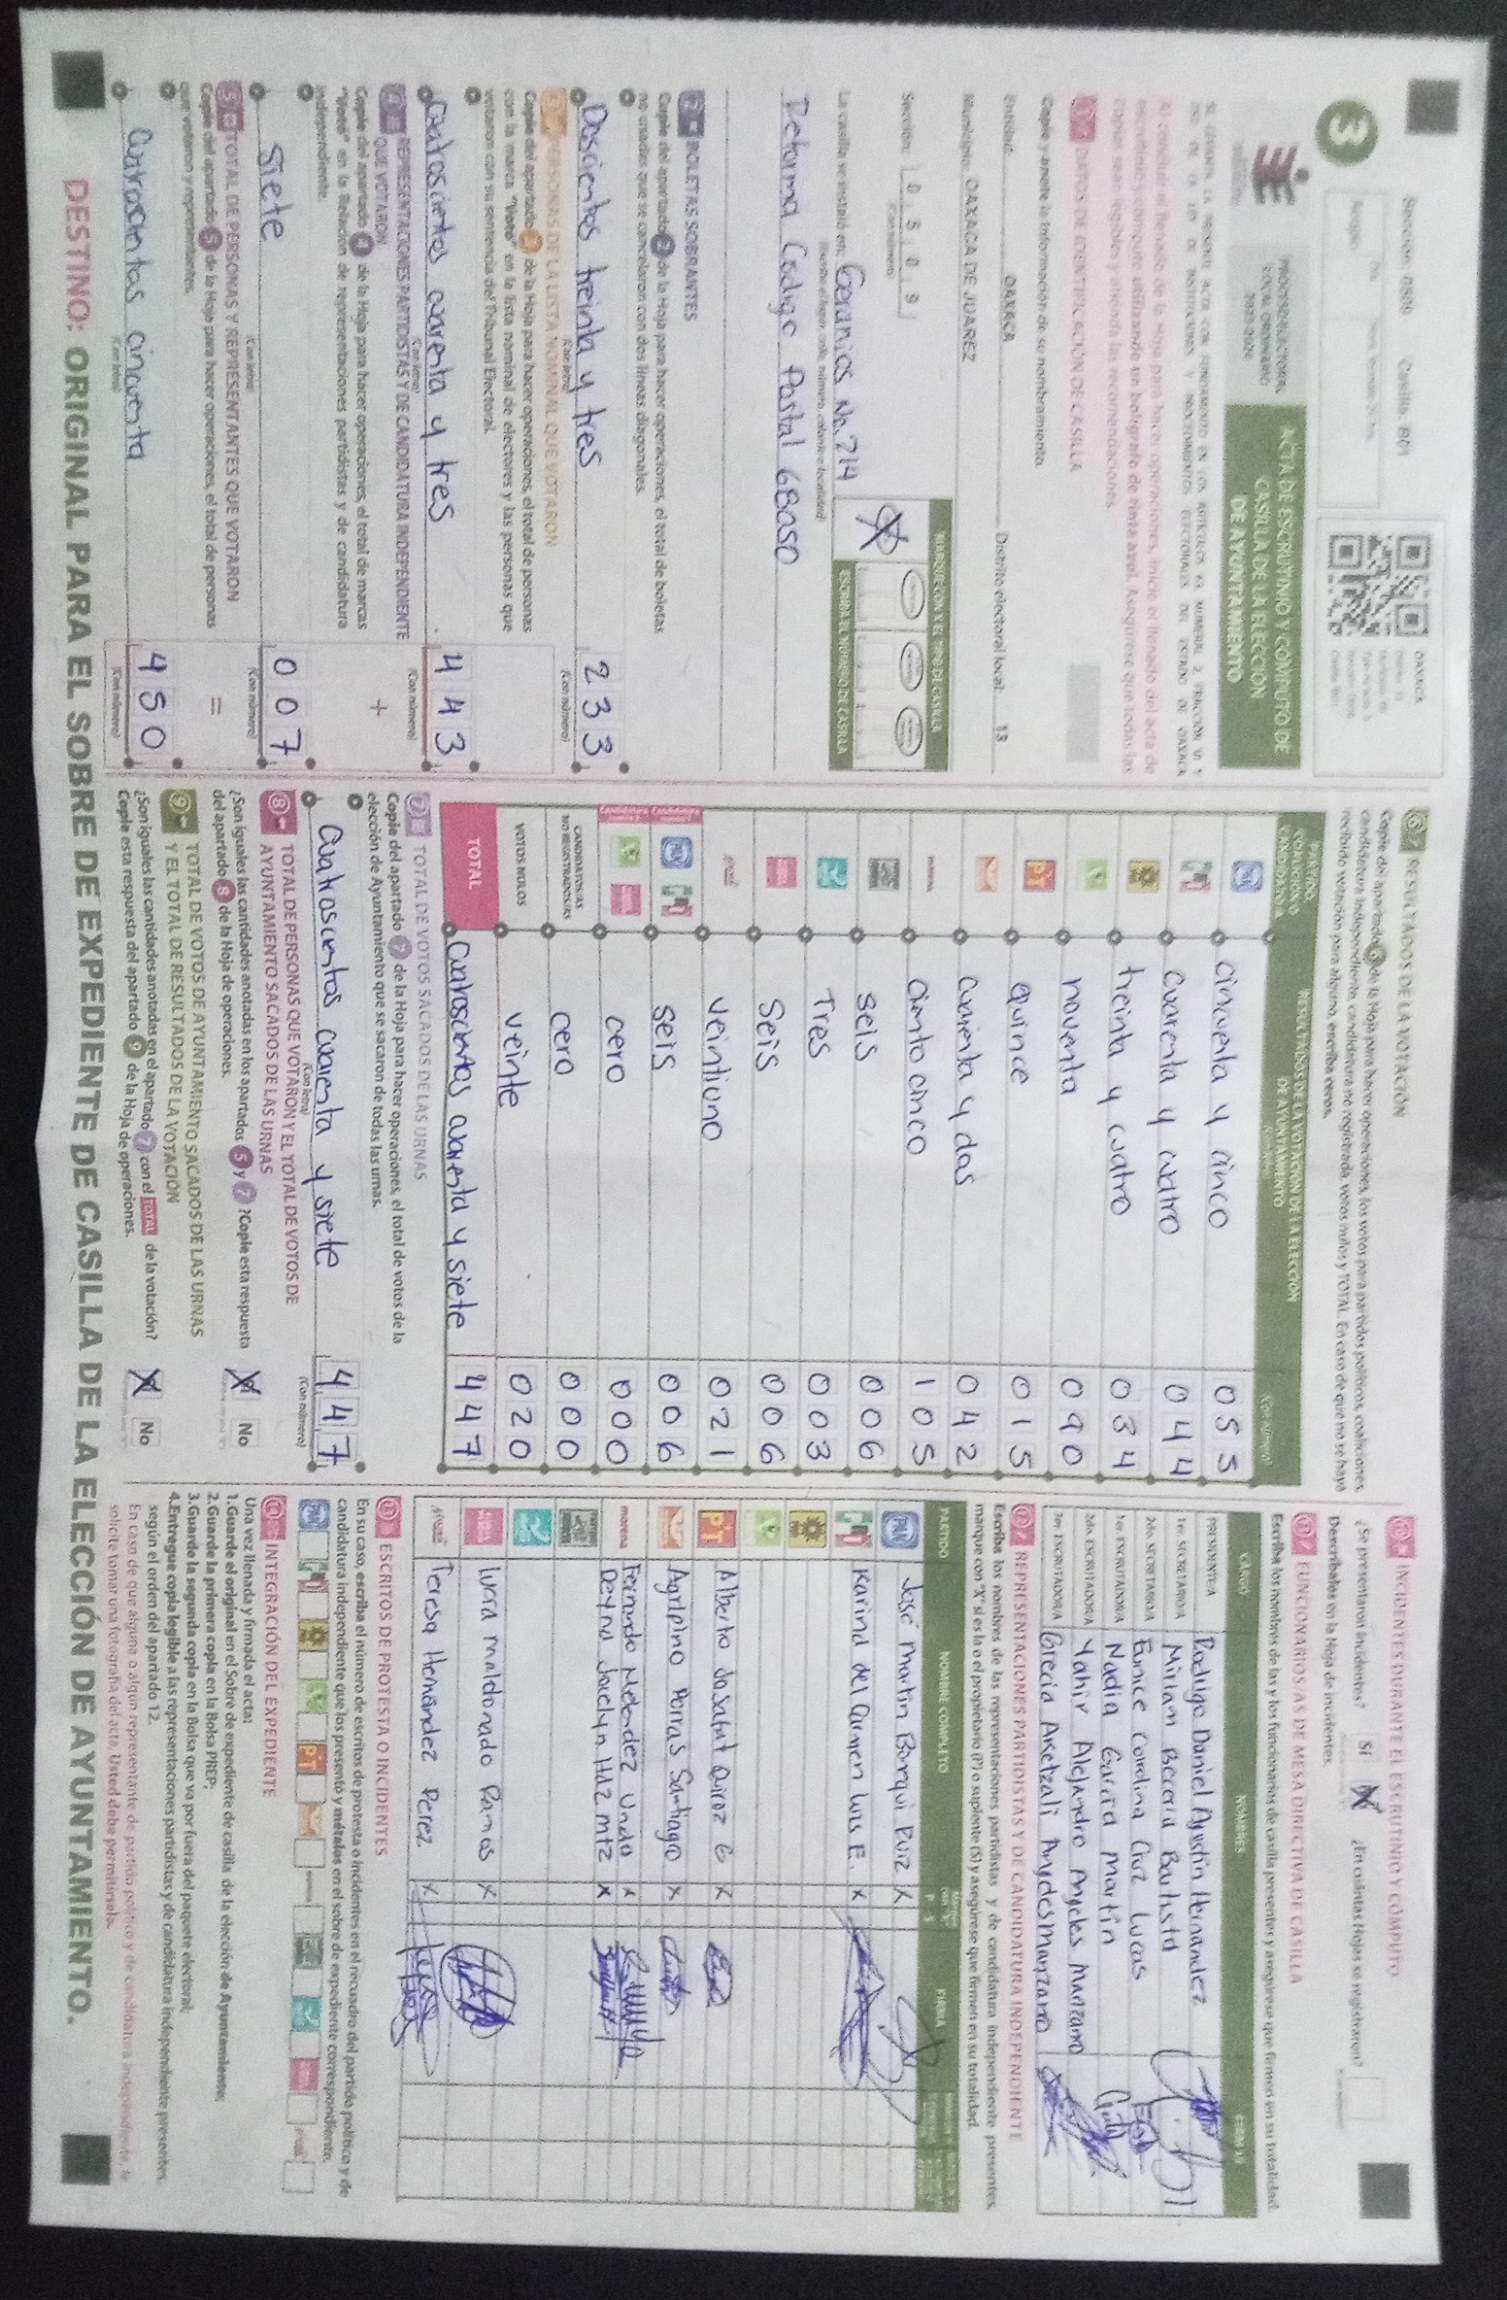 Sección: 0509 Casilla: B01
OAXACA
3
PROCESO ELECTORAL
LOCAL ORDINARIO
2023-2024
ACTA DE ESCRUTINIO Y CÓMPUTO DE
CASILLA DE LA ELECCIÓN
DE AYUNTAMIENTO
Al concluir el llenado de la Hoja para hacer operaciones, inicie el llenado del acta de
escrutinio y cómputo utilizando un bolígrafo de tinta azul. Asegúrese que todas las
copias sean legibles y atienda las recomendaciones.
1 DATOS DE IDENTIFICACIÓN DE CASILLA
Copie y anote la información de su nombramiento.
Entidad: OAXACA Distrito electoral local: 13
Municipio: OAXACA DE JUAREZ
Sección: 0 5 0 9
(Con número)
MARQUE CON X EL TIPO DE CASILLA
ESCRIBA EL NÚMERO DE CASILLA
La casilla se instaló en: Geranios No. 714
(Escriba el lugar, calle, número, colonia o localidad)
Reforma Codigo Postal 68050
2 BOLETAS SOBRANTES
Copie del apartado 2 de la Hoja para hacer operaciones, el total de boletas
no usadas que se cancelaron con dos líneas diagonales.
Doscientos treinta y tres 233
(Con letra) (Con número)
3 PERSONAS DE LA LISTA NOMINAL QUE VOTARON
Copie del apartado 3 de la Hoja para hacer operaciones, el total de personas
con la marca "Votó" en la lista nominal de electores y las personas que
votaron con su sentencia del Tribunal Electoral.
Cuatrocientos cuarenta y tres 443
(Con letra) (Con número)
4 REPRESENTACIONES PARTIDISTAS Y DE CANDIDATURA INDEPENDIENTE
QUE VOTARON
Copie del apartado 4 de la Hoja para hacer operaciones, el total de marcas
"Votó" en la Relación de representaciones partidistas y de candidatura
independiente.
+
siete 007
(Con letra) (Con número)
5 TOTAL DE PERSONAS Y REPRESENTANTES QUE VOTARON
Copie del apartado 5 de la Hoja para hacer operaciones, el total de personas
que votaron y representantes.
=
Cuatrocientos cincuenta 450
(Con letra) (Con número)
6 RESULTADOS DE LA VOTACIÓN
Copie del apartado 6 de la Hoja para hacer operaciones, los votos para partidos políticos, coaliciones,
candidatura independiente, candidatura no registrada, votos nulos y TOTAL. En caso de que no se haya
recibido votación para alguno, escriba ceros.
PARTIDO, COALICIÓN O CANDIDATO/A
RESULTADOS DE LA VOTACIÓN DE LA ELECCIÓN
DE AYUNTAMIENTO
PAN cincuenta y cinco 055
PRI cuarenta y cuatro 044
treinta y cuatro 034
noventa 090
PT Quince 015
cuarenta y dos 042
morena ciento cinco 105
seis 006
Tres 003
Seis 006
veintiuno 021
PAN PRI seis 006
cero 000
CANDIDATOS/AS
NO REGISTRADOS/AS cero 000
VOTOS NULOS veinte 020
TOTAL Cuatrocientos cuarenta y siete 447
7 TOTAL DE VOTOS SACADOS DE LAS URNAS
Copie del apartado 7 de la Hoja para hacer operaciones, el total de votos de la
elección de Ayuntamiento que se sacaron de todas las urnas.
Cuatrocientos cuarenta y siete 447
(Con letra) (Con número)
8 TOTAL DE PERSONAS QUE VOTARON Y EL TOTAL DE VOTOS DE
AYUNTAMIENTO SACADOS DE LAS URNAS
¿Son iguales las cantidades anotadas en los apartados 5 y 7 ?Copie esta respuesta
del apartado 8 de la Hoja de operaciones.
No
9 TOTAL DE VOTOS DE AYUNTAMIENTO SACADOS DE LAS URNAS
Y EL TOTAL DE RESULTADOS DE LA VOTACIÓN
¿Son iguales las cantidades anotadas en el apartado 7 con el TOTAL de la votación?
Copie esta respuesta del apartado 9 de la Hoja de operaciones.
No
10 INCIDENTES DURANTE EL ESCRUTINIO Y CÓMPUTO
¿Se presentaron incidentes? Sí ¿En cuántas Hojas se registraron?
Descríbalos en la Hoja de incidentes.
11 FUNCIONARIOS/AS DE MESA DIRECTIVA DE CASILLA
Escriba los nombres de las y los funcionarios de casilla presentes y asegúrese que firmen en su totalidad.
CARGO NOMBRES FIRMAS
PRESIDENTE/A Rodrigo Daniel Agustín Hernandez
1er. SECRETARIO/A Miriam Becerra Bautista
2do. SECRETARIO/A Eunice Carolina Cruz Lucas
1er. ESCRUTADOR/A Nadia Garcia Martin
2do. ESCRUTADOR/A Yahir Alejandro Angeles Manzano
3er. ESCRUTADOR/A Grecia Aketzali Angeles Manzano
12 REPRESENTACIONES PARTIDISTAS Y DE CANDIDATURA INDEPENDIENTE
Escriba los nombres de las representaciones partidistas y de candidatura independiente presentes,
marque con "X" si es la o el propietario (P) o suplente (S) y asegúrese que firmen en su totalidad.
PARTIDO NOMBRE COMPLETO P S FIRMA
PAN José Martín Borqui Ruiz X
PRI Karina del Carmen Luis E. X
PT Alberto Josafat Quiroz G X
Agripino Porras Santiago X
morena Fernando Melendez Unda X
Deyna Joselyn Hdz Mtz X
lucia maldonado Ramos X
Teresa Hernández Perez X
13 ESCRITOS DE PROTESTA O INCIDENTES
En su caso, escriba el número de escritos de protesta o incidentes en el recuadro del partido político y de
candidatura independiente que los presentó y métalos en el sobre de expediente correspondiente.
INTEGRACIÓN DEL EXPEDIENTE
Una vez llenada y firmada el acta:
1.Guarde el original en el Sobre de expediente de casilla de la elección de Ayuntamiento;
2.Guarde la primera copia en la Bolsa PREP;
3.Guarde la segunda copia en la Bolsa que va por fuera del paquete electoral;
4.Entregue copia legible a las representaciones partidistas y de candidatura independiente presentes,
según el orden del apartado 12.
En caso de que alguna o algún representante de partido político y de candidatura independiente, le
solicite tomar una fotografía del acta. Usted debe permitírselo.
DESTINO: ORIGINAL PARA EL SOBRE DE EXPEDIENTE DE CASILLA DE LA ELECCIÓN DE AYUNTAMIENTO.